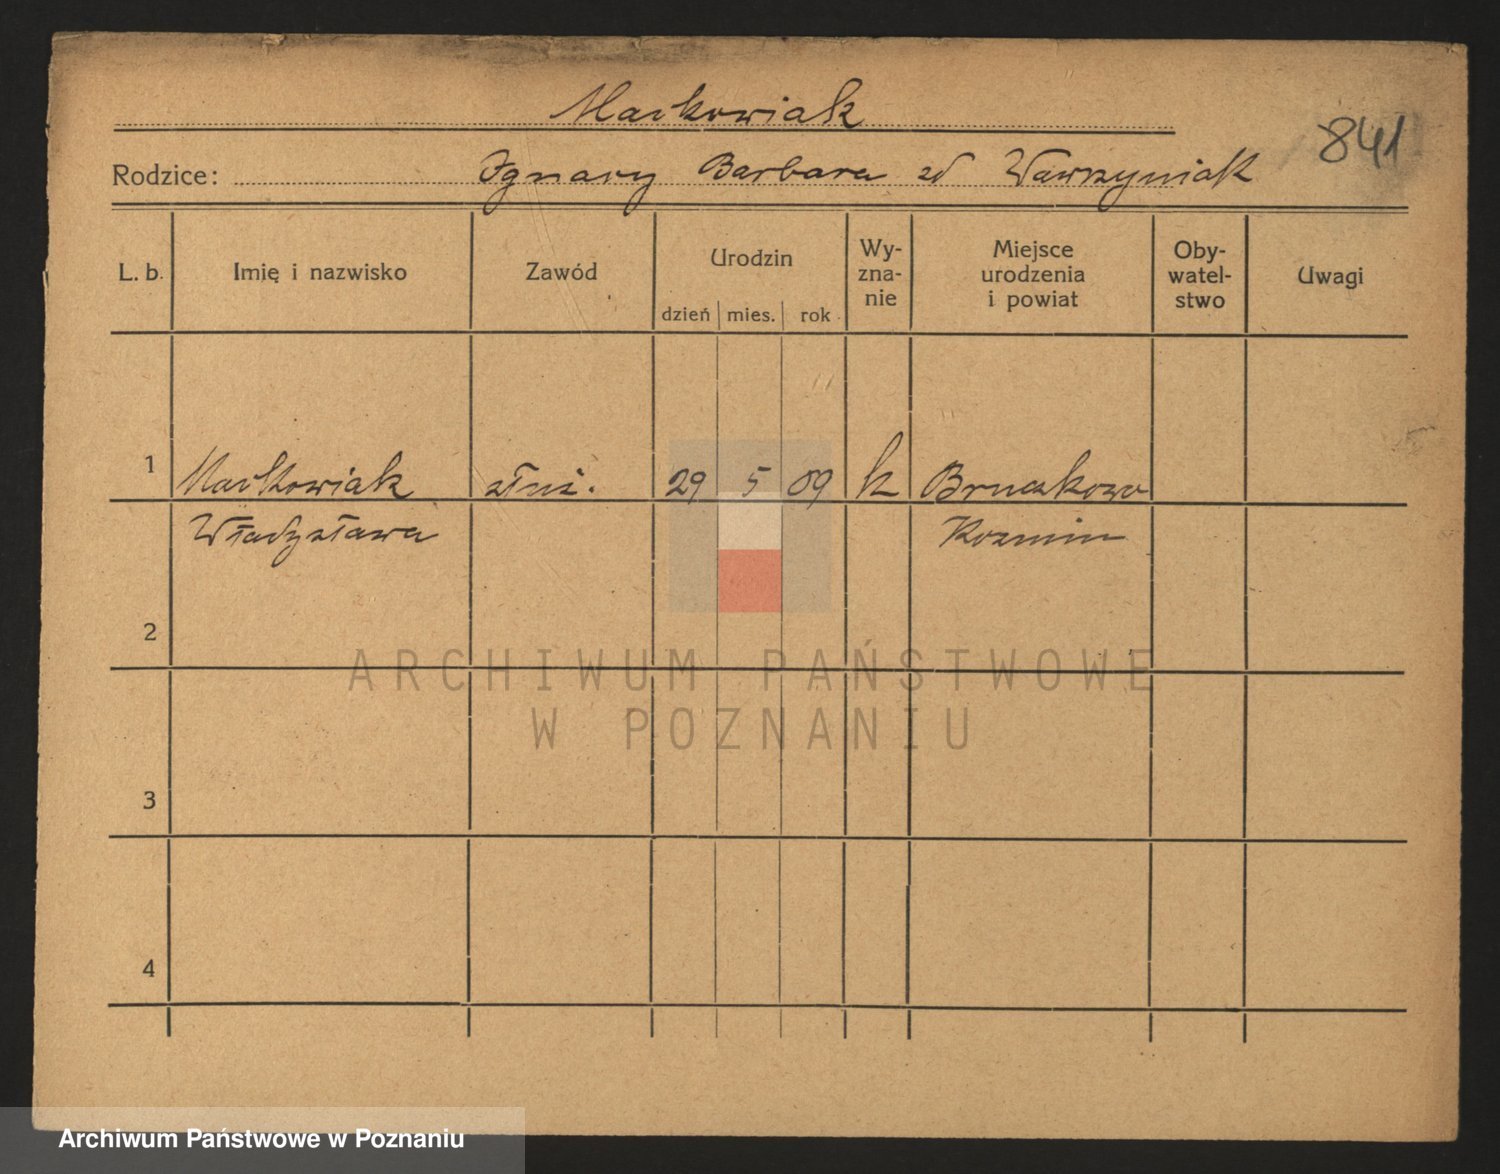 Maćkowiak
841
Rodzice: Ignacy Barbara zd Wawrzyniak
L. b. Imię i nazwisko Zawód Urodzin dzień mies. rok Wy-zna-nie Miejsce urodzenia i powiat Oby-watel-stwo Uwagi
1 Maćkowiak służ. 29 5 09 k Bruczkowo
Władysława Kozmin
2
3
4
ARCHIWUM PAŃSTWOWE
W POZNANIU
Archiwum Państwowe w Poznaniu